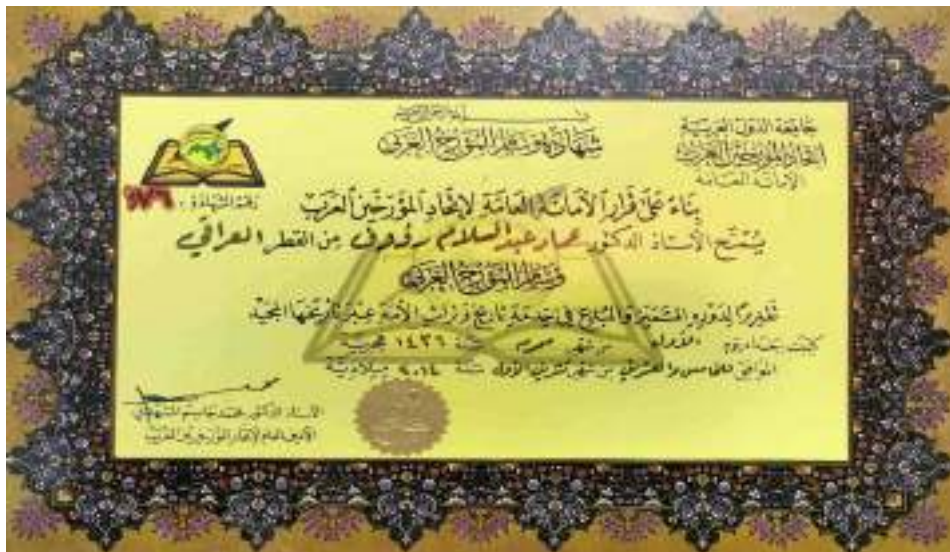 جامعة الدول العربية
اتحاد المؤرخين العرب
الأمانة العامة
شهادة وسام المؤرخ العربي
رقم الشهادة
بناءً على قرار الأمانة العامة لاتحاد المؤرخين العرب
يُمنح الأستاذ الدكتور عماد عبد السلام رؤوف من القطر العراقي
وسام المؤرخ العربي
تقديرًا لدوره المتميز والمبدع في خدمة تاريخ وتراث الأمة عبر تأريخها المجيد
كتبت ببغداد يوم الأول من شهر محرم سنة ١٤٣٦ هجرية
الموافق الخامس والعشرين من شهر تشرين الأول سنة ٢٠١٤ ميلادية
الأستاذ الدكتور محمد جاسم المشهداني
الأمين العام لاتحاد المؤرخين العرب